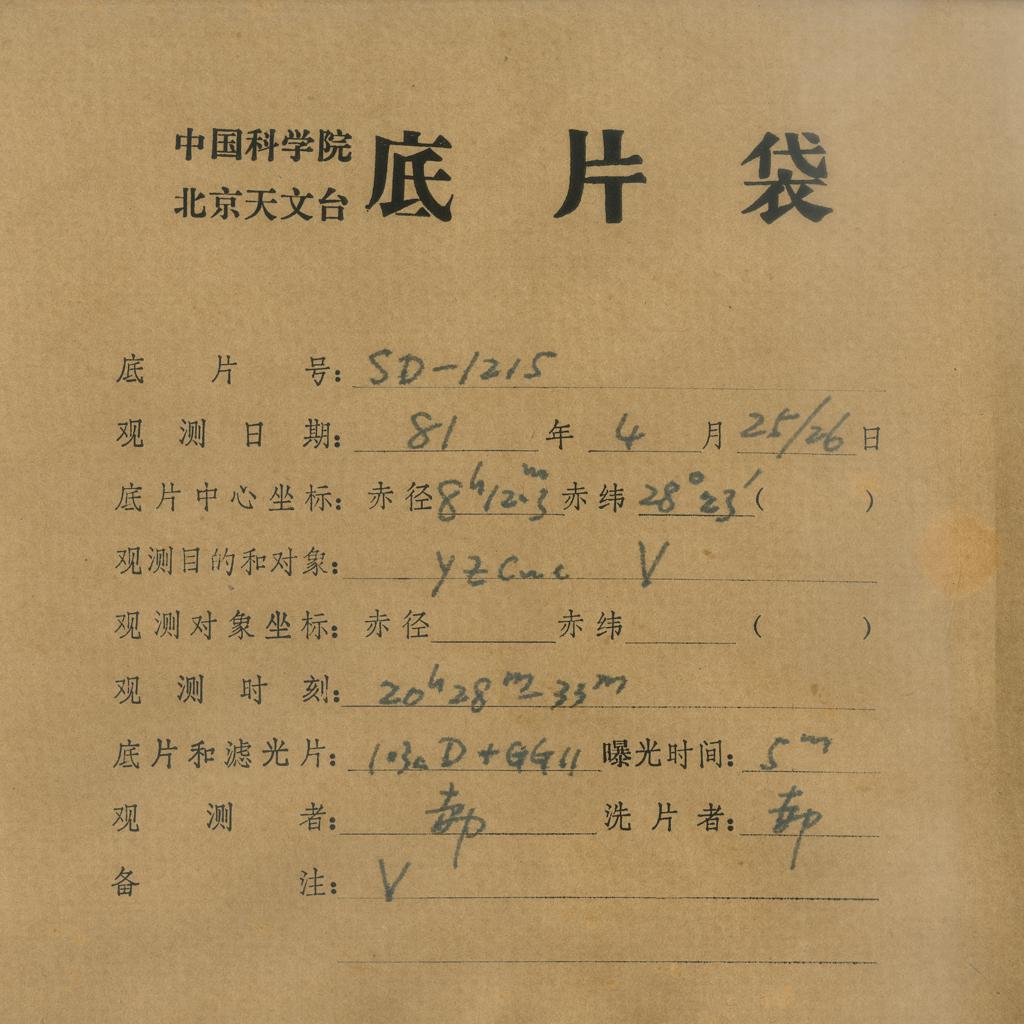 中国科学院
北京天文台
底片袋
底片号：SD-1215
观测日期：81年4月25/26日
底片中心坐标：赤径8ʰ12.ᵐ3赤纬28°23′（ ）
观测目的和对象：YZ Cnc V
观测对象坐标：赤径 赤纬 （ ）
观测时刻：20ʰ28ᵐ-33ᵐ
底片和滤光片：103aD+GG11 曝光时间：5ᵐ
观测者： 洗片者：
备注：V